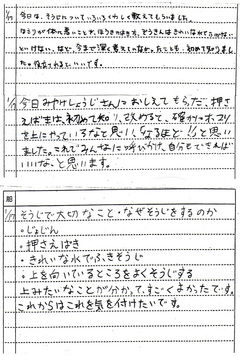 1/17 今日は、そうじについていろいろくわしく教えてもらいました。
ほうきが体に悪いことや、ほうきのはき方、ぞうきんはきれいな水でしぼらない
といけない、など、今まで深く考えていなかったことも、初めて知りまし
た。役立つかもでいいです。
1/17 今日みやけしょうじさんにおしえてもらった、押さ
えばきは、初めて知り、改めると、確かにホコリ
を上にやっているなと思い、なるほど!!と思い
ました。これでみんなに呼びかけ、自分もできれば
いいな、と思います。
1/17 そうじで大切なこと・なぜそうじをするのか
・じょきん
・押さえばき
・きれいな水でふきそうじ
・上を向いているところをよくそうじする
上みたいなことが分かって、すごくよかったです。
これからはこれを気を付けたいです。